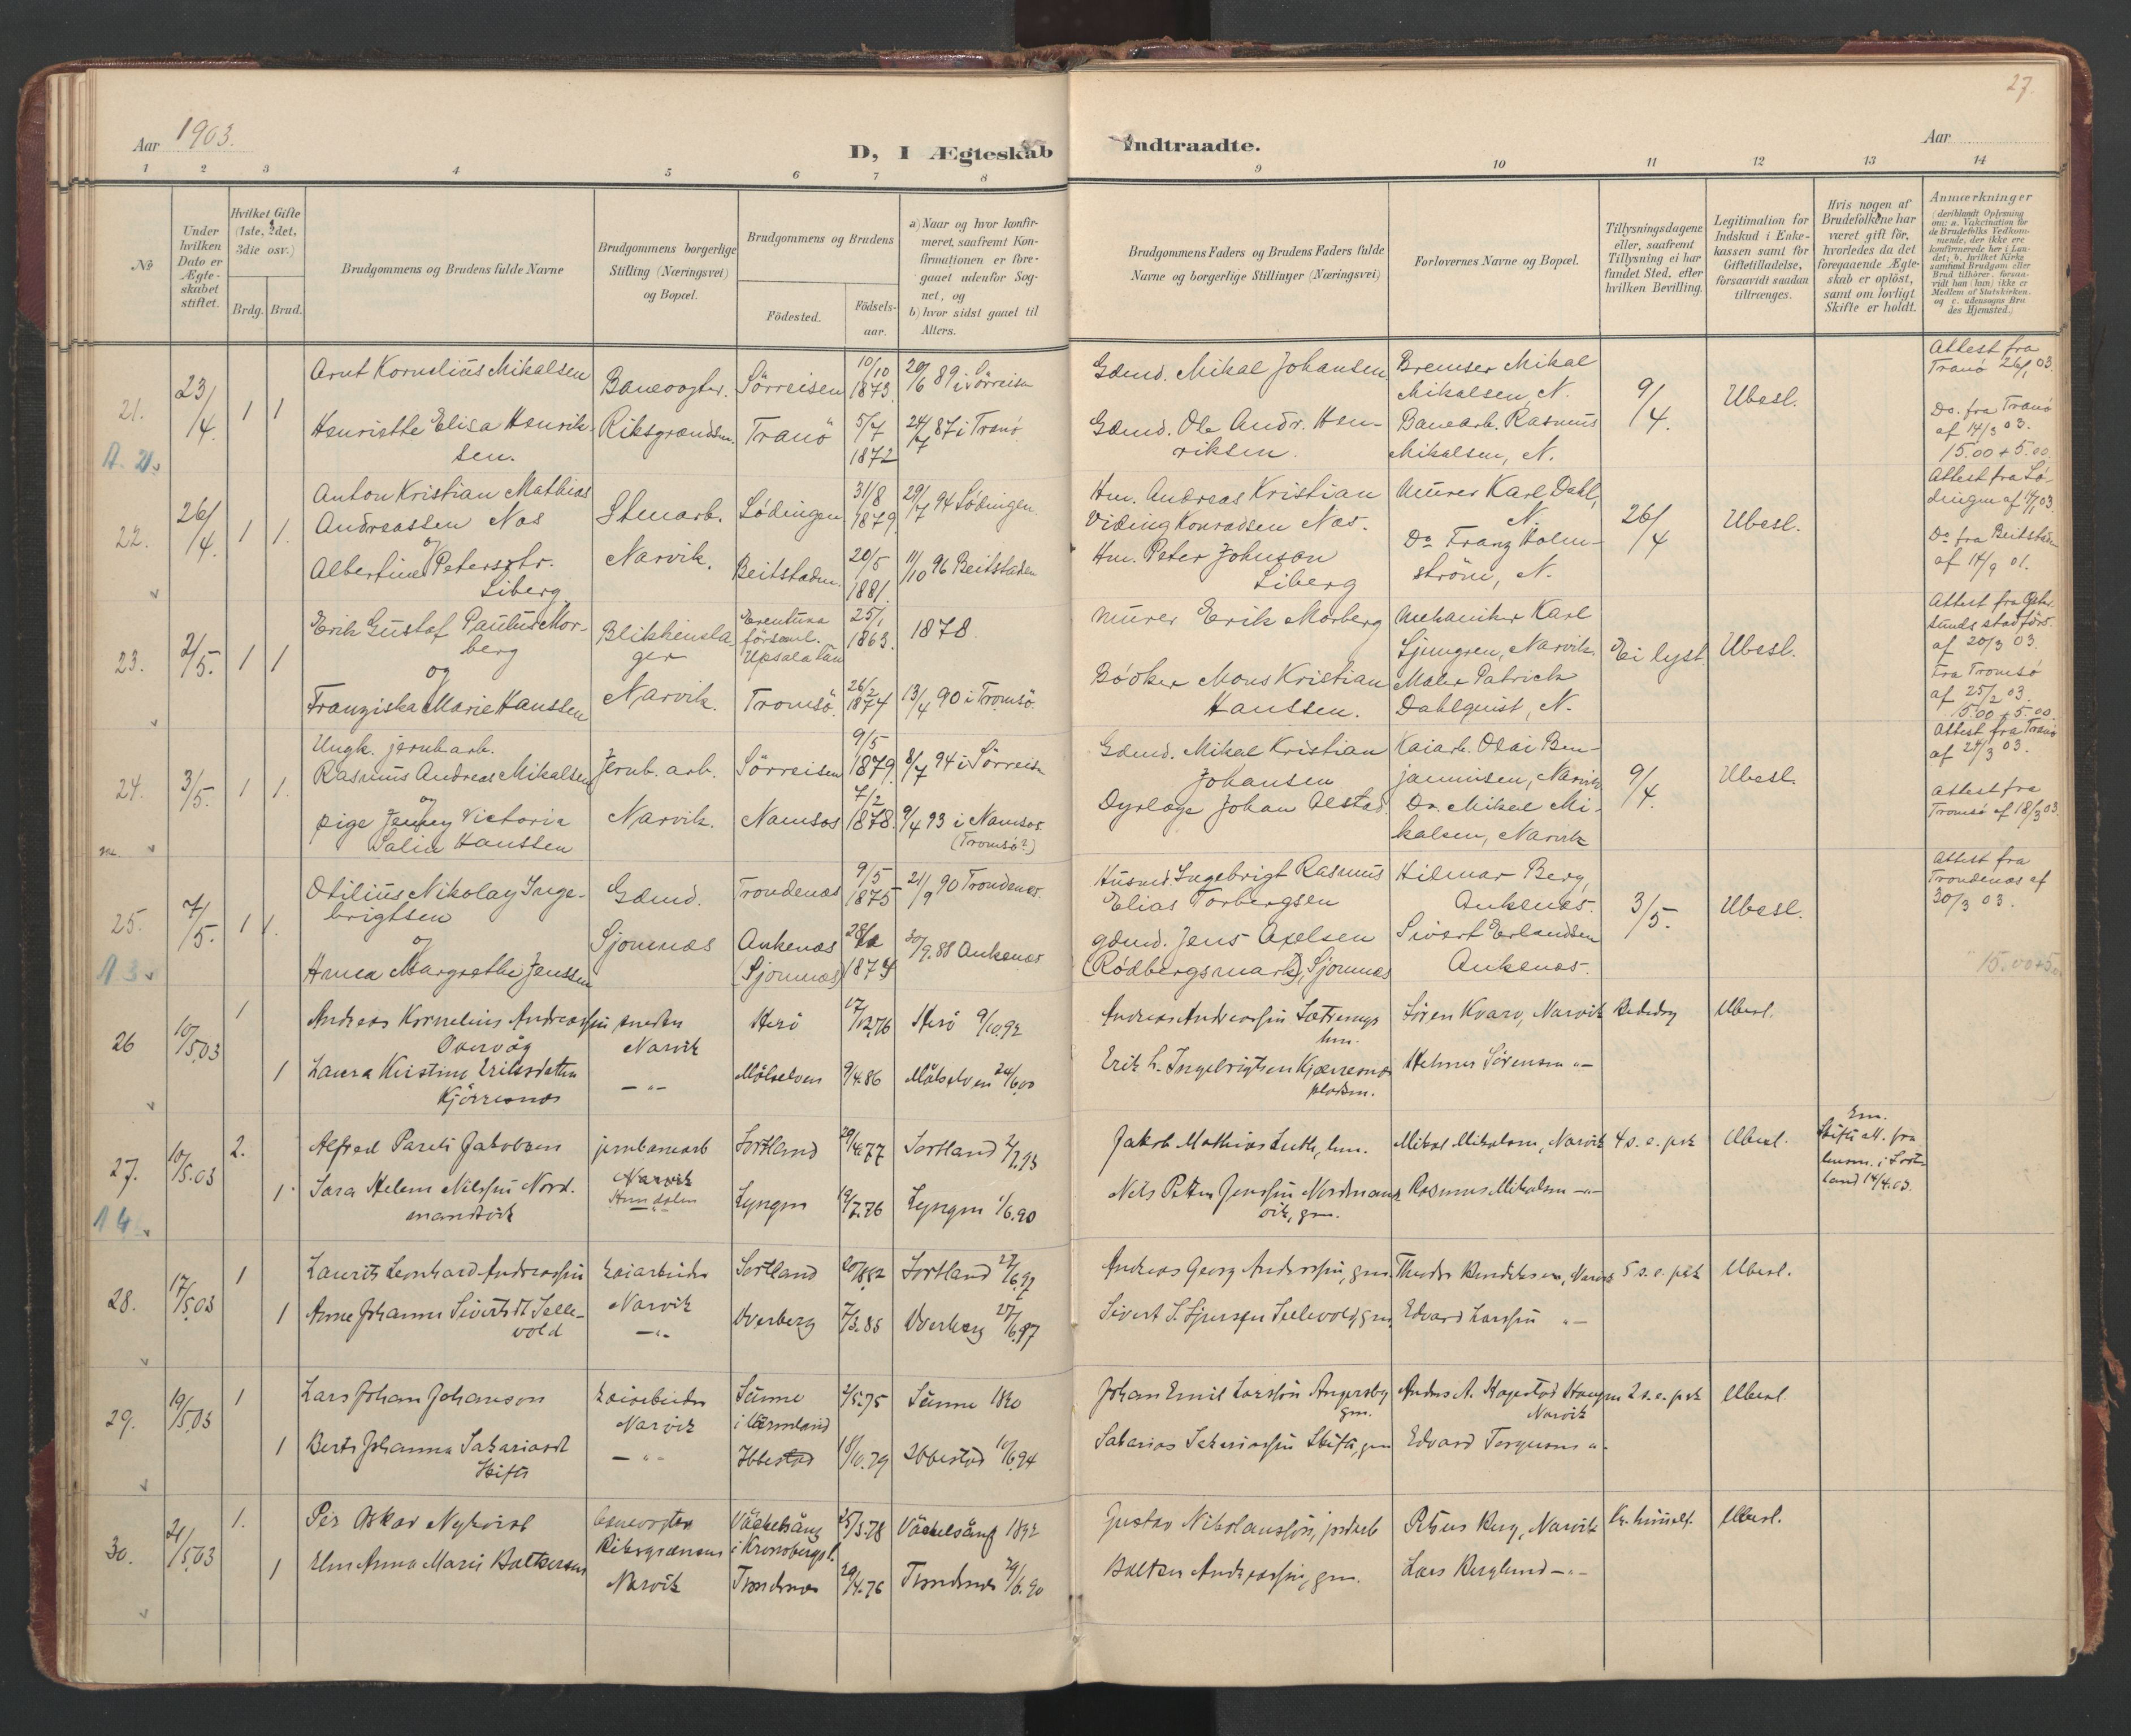 27.
Aar 1903.
D, I Ægteskab Indtraadte.
Aar
1 2 3 4 5 6 7 8 9 10 11 12 13 14
No
Under hvilken Dato er Ægteskabet stiftet.
Hvilket Gifte (1ste, 2det, 3die osv.)
Brdg. Brud.
Brudgommens og Brudens fulde Navne
Brudgommens borgerlige Stilling (Næringsvei) og Bopæl.
Brudgommens og Brudens
Födested.
Födselsaar.
a) Naar og hvor konfirmeret, saafremt Konfirmationen er foregaaet udenfor Sognet, og
b) hvor sidst gaaet til Alters.
Brudgommens Faders og Brudens Faders fulde Navne og borgerlige Stillinger (Næringsvei)
Forlovernes Navne og Bopæl.
Tillysningsdagene eller, saafremt Tillysning ei har fundet Sted, efter hvilken Bevilling.
Legitimation for Indskud i Enkekassen samt for Giftetilladelse, forsaavidt saadan tiltrænges.
Hvis nogen af Brudefolkene har været gift för, hvorledes da det foregaaende Ægteskab er oplöst, samt om lovligt Skifte er holdt.
Anmærkninger
(deriblandt Oplysning om: a. Vakcination for de Brudefolks Vedkommende, der ikke ere konfirmerede her i Landet; b. hvilket Kirkesamfund Brudgom eller Brud tilhörer, forsaavidt han (hun) ikke er Medlem af Statskirken, og c. udensogns Brudes Hjemsted.)
21. 23/4. 1 1
Arnt Kornelius Mikalsen
Henriette Elisa Henriksen.
Banevogter.
Riksgrændsen.
Sörreisen 10/10 1873. 20/6 89 i Sörreisen
Tranö 5/7 1872 24/7 87 i Tranö
Gdmd. Mikal Johansen
Gdmd. Ole Andr. Henriksen.
Bremser Mikal Mikalsen, N.
Banearb. Rasmus Mikalsen, N.
9/4. Ubesl.
Attest fra Tranö 26/1 03.
Do. fra Tranö af 14/3 03.
15.00 + 5.00.
22. 26/4. 1 1.
Anton Kristian Mathias Andreassen Nos
og
Albertine Petersdtr. Liberg
Stenarb.
Narvik.
Lödingen 31/8 1879. 29/7 94 Lödingen.
Beitstaden. 20/5 1881. 11/10 96 Beitstaden
Hm. Andreas Kristian Viding Konradsen Nos.
Hm. Peter Johnson Liberg
Murer Karl Dahl, N.
Do Franz Holmström, N.
26/4 Ubesl.
Do fra Beitstaden af 14/9 01.
23. 2/5. 1 1
Erik Gustaf Paulus Morberg
og
Franziska Marie Hanssen
Blikkenslager
Narvik.
församl. Upsala län 25/1 1863. 1878.
Tromsö. 26/2 1874 13/4 90 i Tromsö.
Murer Erik Morberg
Bödker Mons Kristian Hanssen.
Mekaniker Karl Ljungren, Narvik.
Maler Patrick Dahlquist, N.
Ei lyst. Ubesl.
af 20/3 03.
Fra Tromsö af 25/2 03.
15.00 + 5.00.
24. 3/5. 1 1.
Ungk. jernb.arb.
Rasmus Andreas Mikalsen
og
pige Jenny Victoria Salin Hanssen
Jernb. arb.
Narvik.
Sörreisen 9/5 1879. 8/7 94 i Sörreisen
Namsos 7/2 1878. 9/4 93 i Namsos. (Tromsö?)
Gdmd. Mikal Kristian Johansen
Dyrlæge Johan Alstad
Kaiarb. Olai Benjaminsen, Narvik
Do. Mikal Mikalsen, Narvik
9/4. Ubesl.
Attest fra Tranö af 24/3 03.
Attest fra Tromsö af 18/3 03
25. 7/5. 1 1.
Otilius Nikolay Ingebrigtsen
og
Anna Margrethe Jenssen
Gdmd.
Sjomnæs
Trondenæs 9/5 1875 21/9 90 Trondenæs.
Ankenæs (Sjomnæs) 30/9. 88 Ankenæs
Husmd. Ingebrigt Rasmus Elias Torbergsen
gdmd. Jens Axelsen (Rödbergsmark), Sjomnæs
Hilmar Berg, Ankenæs.
Sivert Erlandsen Ankenæs.
3/5. Ubesl.
Attest fra Trondenæs af 30/3 03.
15.00 + 5.00
26 10/5.03 1 1
Andreas Kornelius Andreassen Overvåg
Laura Kristine Eriksdatter Kjörresnæs
smeden
Narvik
— „ —
Herö 17/12.76 Herö 9/10.92
Målselven 9/4.86 Målselven 24/6.00
Andreas Andreassen
hm.
Erik L. Ingebrigtsen Kjærresnæs pladsm.
Sören Kvarv, Narvik
Helmer Sörensen „ —
Ubesl.
27. 10/5.03 2. 1
Alfred Pareli Jakobsen
Sara Helene Nilssen Nordmandvik
jernbanearb
Narvik
Sortland 29/4.77 Sortland 2/7.93
Lyngen 19/7.76 Lyngen 1/6.90
Jakob Mathias Luth, hm.
Nils Petter Jenssen Nordmandvik, gm.
Mikal Mikalsen, Narvik
Rasmus Mikalsen — „ —
4 s. e. psk Ubesl.
Em.
Skifteatt. fra lensm. i Sortland 14/4.03.
28. 17/5.03 1 1
Laurits Leonhard Andreassen
Anne Johanne Sivertsdt Sellevold
kaiarbeider
Narvik
— „ —
Sortland 20/8.82 Sortland 27/6.97
Værberg 7/3.85 27/6.97
Andreas Georg Anderssen, gm.
Sivert S. Sellevold, gm.
Theodor Bendiksen, Narvik
Edvard Larssen „ —
5 s. e. psk Ubesl.
29. 19/5.03 1 1
Lars Johan Johanson
Berte Johanna Sakariasdt Skifte
kaiarbeider
Narvik
— „ —
Sunne i Värmland 2/5.75 Sunne 1890
Ibbestad 18/10.79 Ibbestad 10/6.94
Johan Emil Larsson Angersby gm.
Sakarias Sakariassen Skifte, gm
Anders A. Hagestad Haugen Narvik
Edvard Torgersen „ -
2 s. e. psk Ubesl.
30. 21/5.03 1. 1
Per Oskar Nykvist
Elen Anna Marie Baltzersen
banevogter
Riksgrænsen
Narvik
Väckelsång i Kronobergs l. 25/3.78 Väckelsång 1892
Trondenes 29/4.76 Trondenes 29/6.90
Gustav Nikolausson, jordarb
Baltzer Andreassen, gm.
Petrus Berg, Narvik
Lars Berglund — „ —
Ubesl.